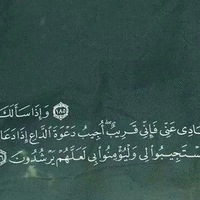 ١٨٥ وَإِذَا سَأَلَكَ
بَادِى عَنِّى فَإِنِّى قَرِيبٌ ۖ أُجِيبُ دَعْوَةَ ٱلدَّاعِ إِذَا دَعَا
سْتَجِيبُوا۟ لِى وَلْيُؤْمِنُوا۟ بِى لَعَلَّهُمْ يَرْشُدُونَ